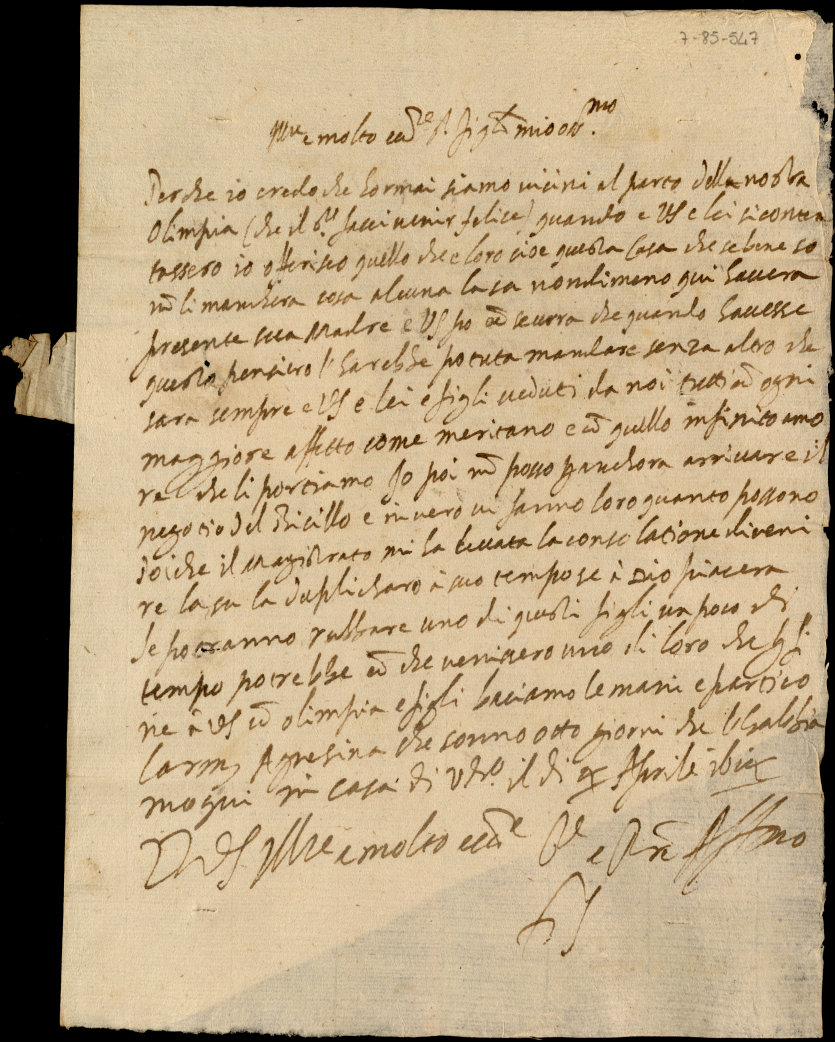 7-85-547
Ill.re e molto ecc.te s.r figl.o mio oss.mo
Perche io credo che hormai siamo vicini al parto della nostra
Olimpia (che il s.r facci venir felice) quando e VS e lei si conten
tassero io offerisco quello che e loro cioe questa Casa che se bene so
nō li manchera cosa alcuna la sa nondimeno qui havera
presente sua Madre e VS po ēē secura che quando havesse
questo pensiero l'harebbe potuta mandare senza altro che
sara sempre e VS e lei e figli veduti da noi tutti cō ogni
maggiore affetto come meritano e cō quello infinito amo
re che li portiamo Io poi nō posso anchora arrivare il
negotio del e in vero vi fanno loro quanto possono
poiche il Magistrato mi ha levata la consolatione di veni
re la su la duplicharo à suo tempo se à Dio piacera
se potranno rubbare uno di questi figli un poco di
tempo potrebbe ēē che venissero uno di loro che
ne à VS cō olimpia e figli baciamo le mani e partico
larm. Agnesina che sonno otto giorni che l'habbia
mo qui in casa di il di Aprile
D VS Illre e molto ecc.te S.re e P.re Aff.mo